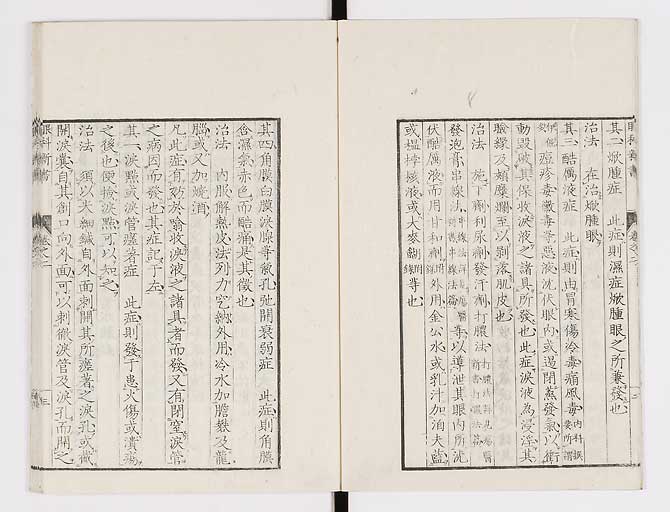 其二 焮腫症 此症則濕症焮腫眼之所兼發也
治法 在治焮腫眼
其三 酷厲液症 此症則由冒寒傷冷毒痛風毒 內科撰要所謂
痘疹毒黴毒等惡液沈伏眼內或遏閉蒸發氣以衝
動毀敗其保收淚液之諸具所發也此症淚液為浸淫其
瞼緣及頰靡爛至以剝落肌皮也
治法 施下劑利尿劑發汗劑打膿法
發泡膏串線法 等以導泄其眼內所沈
伏酷厲液而用甘和劑外用金公水或乳汁加泊夫藍
或榲桲核液或大麥餬等也
其四 角膜白膜淚腺等氣孔弛開衰弱症 此症則角膜
含濕氣赤色而酷痛是其徵也
治法 內服解熱皮法列力它納外用冷水加膽礬及龍
腦或又加燒酒
凡此症有効於翕收淚液之諸具者而發又有閉窒淚管
之病因而發也其症記于左
其一 淚點或淚管壅著症 此症則發于患火傷或潰瘍
之後也便撿淚點可以知之
治法 須以大細鍼自外面刺開其所壅著之淚孔或
開淚囊自其創口向外面可以刺徹淚管及淚孔而開之
眼科新書
卷之二
三